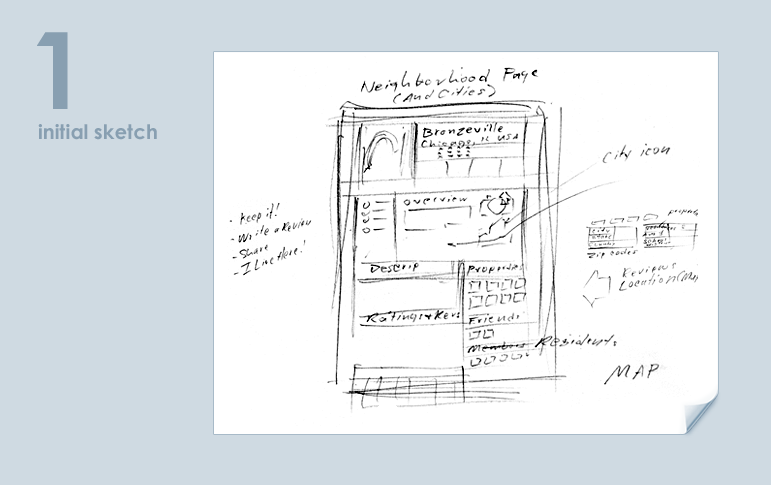 1
initial sketch
Neighborhood Page
(And Cities)
Bronzeville
Chicago, IL USA
City icon
overview
- Keep it!
- Write a Review
- Share
- I Live Here!
zip codes
Reviews
Descrip
Properties
Ratings & Revs
Friends
Members Residents
MAP